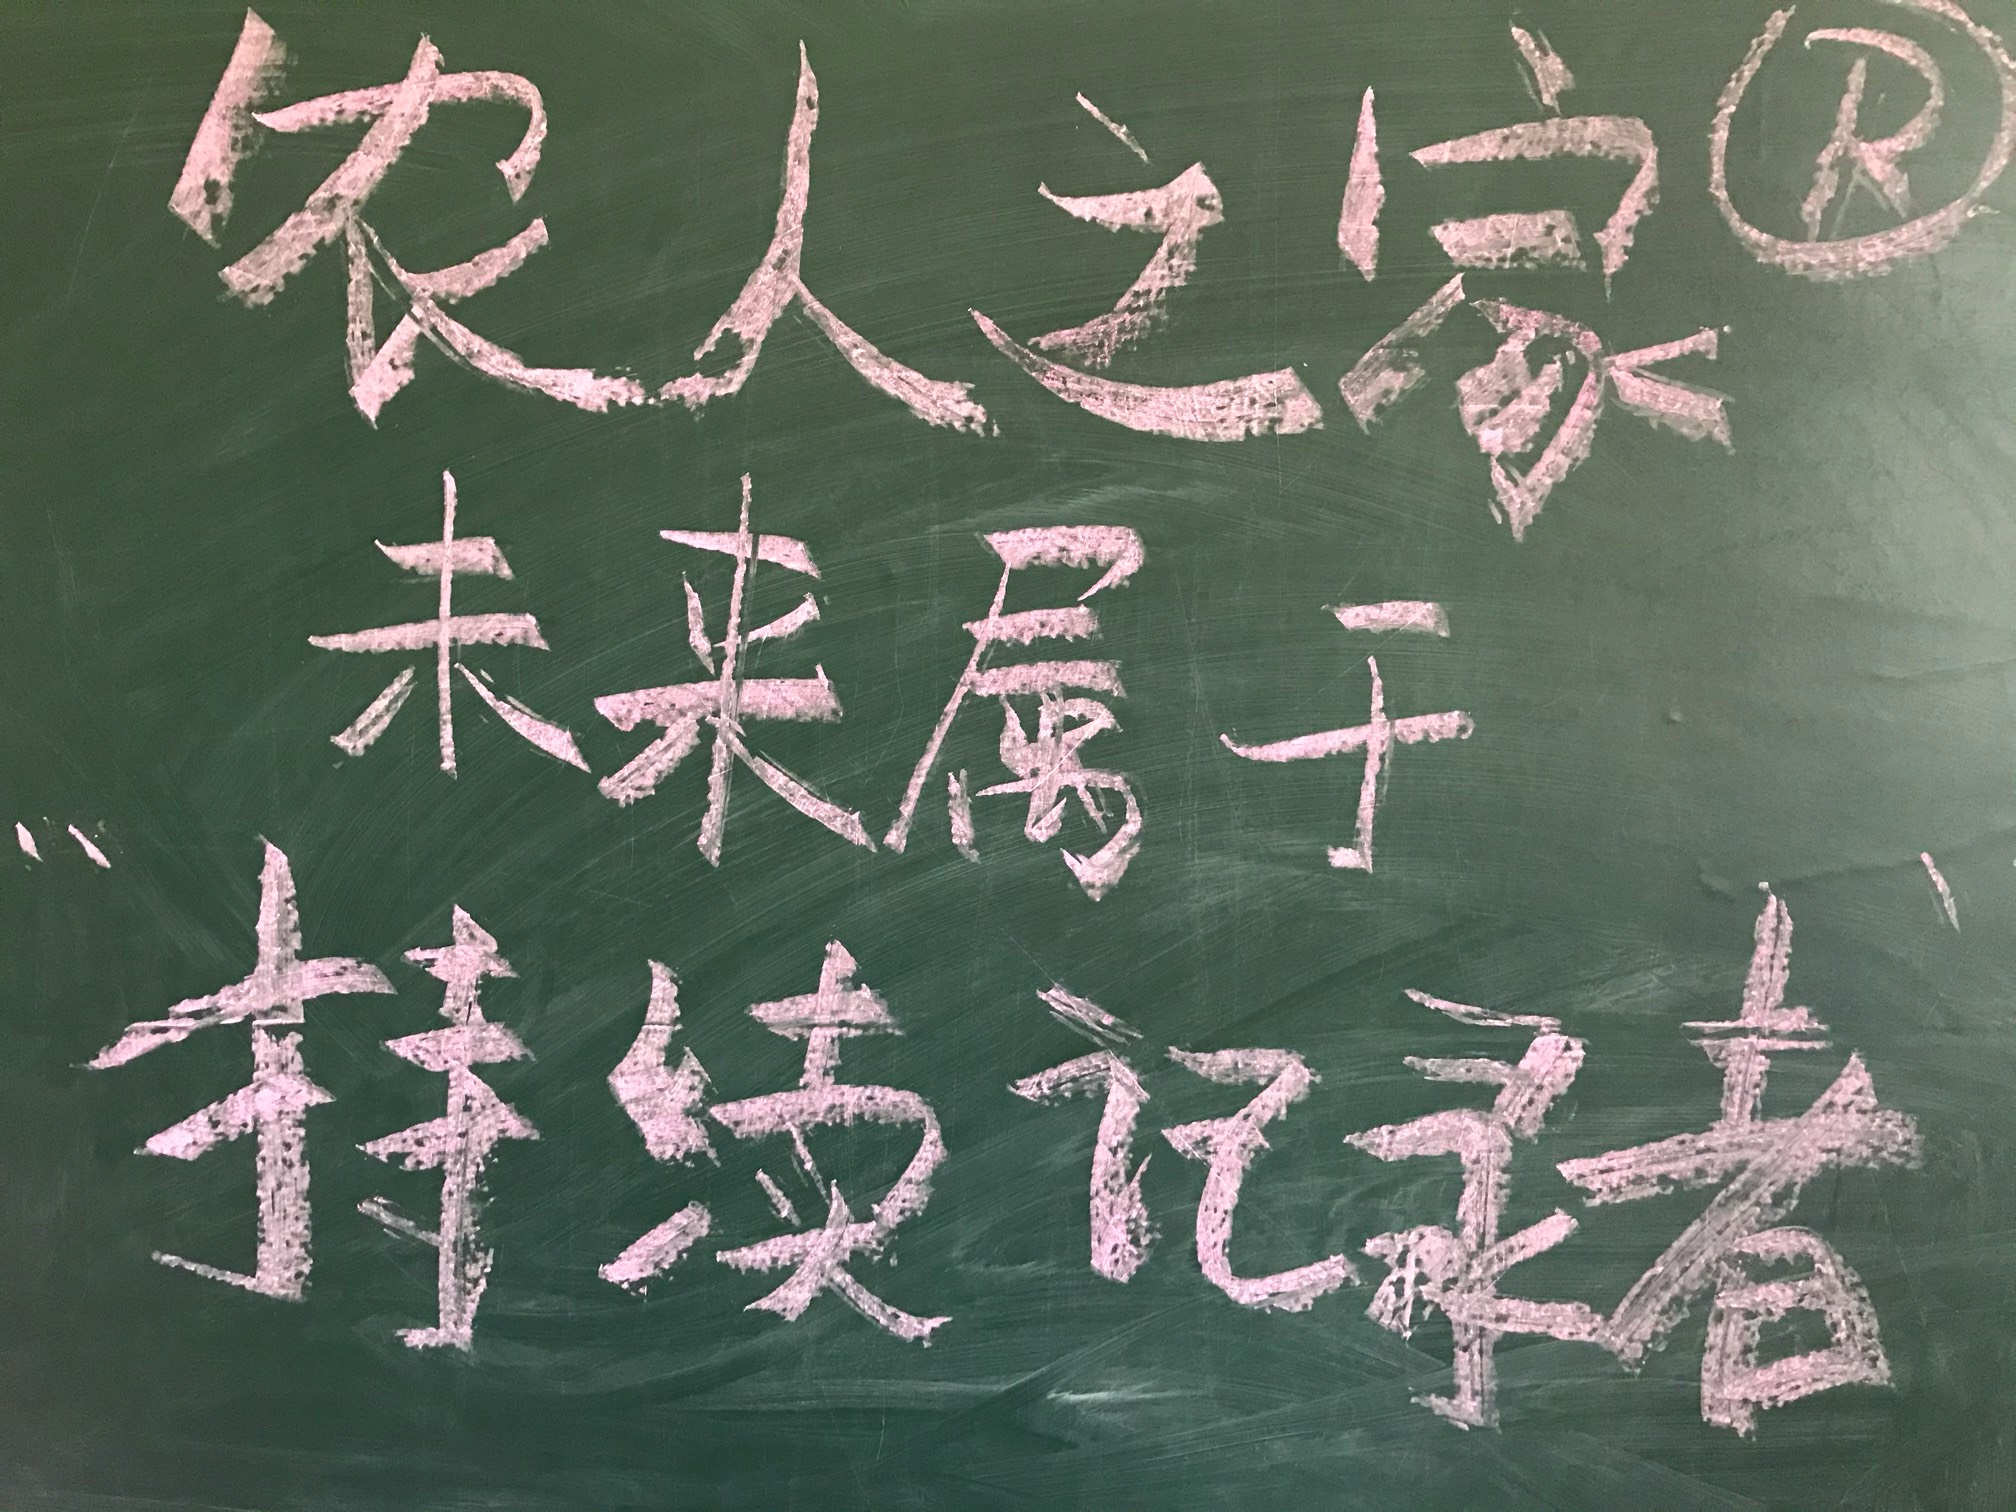 农人之家®
未来属于
“持续记录者”